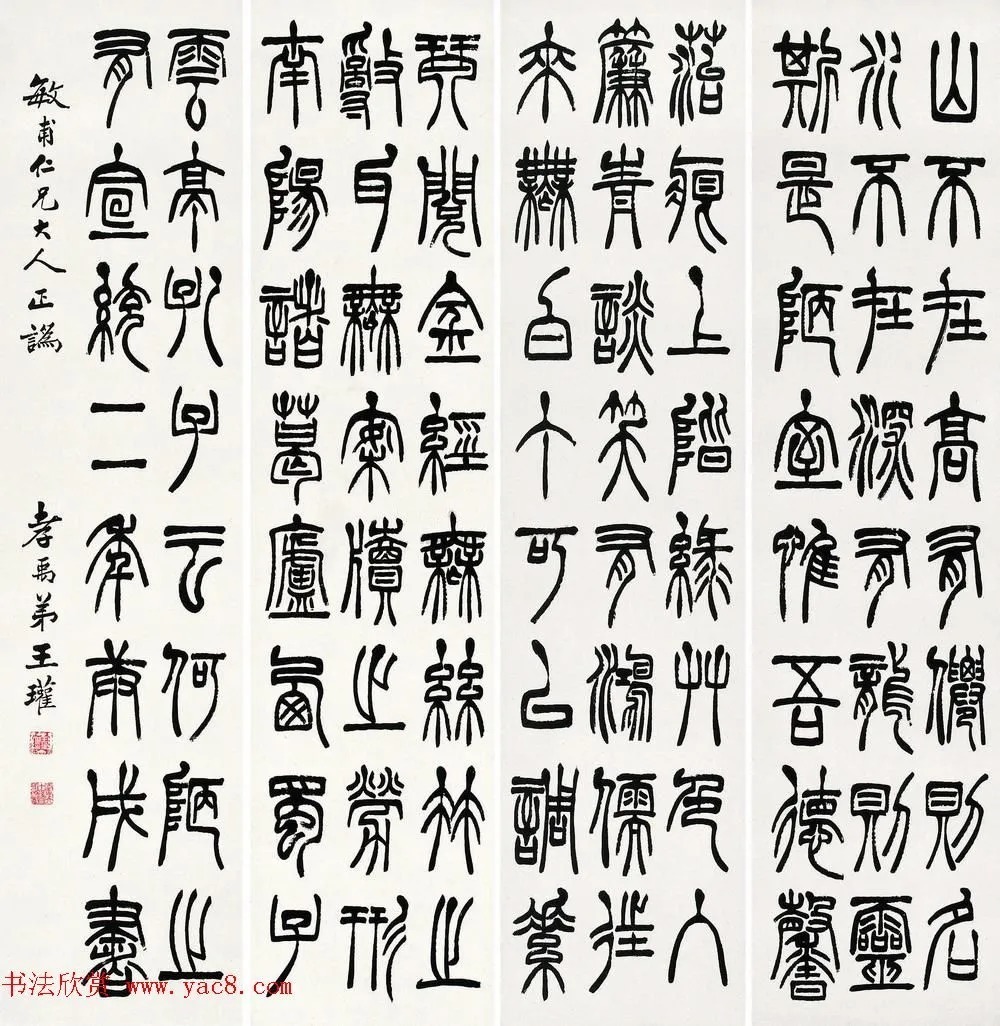 山不在高有僊則名
水不在深有龍則靈
斯是陋室惟吾德馨
菭痕上階綠艸色入
簾青談笑有鴻儒往
來無白丁可以調素
琴閱金經無絲竹之
亂耳無案牘之勞形
南陽諸葛廬西蜀子
雲亭孔子云何陋之
有宣統二年庚戌書
敏甫仁兄大人正譌
孝禹弟王瓘
书法欣赏 www.yac8.com